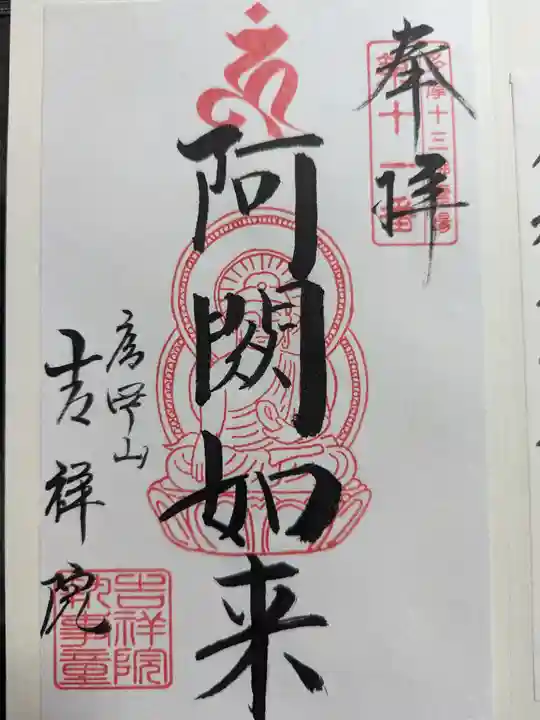 奉拝
多摩十三佛霊場
第十一番
阿閦如来
山
吉祥院
吉祥院
執事章